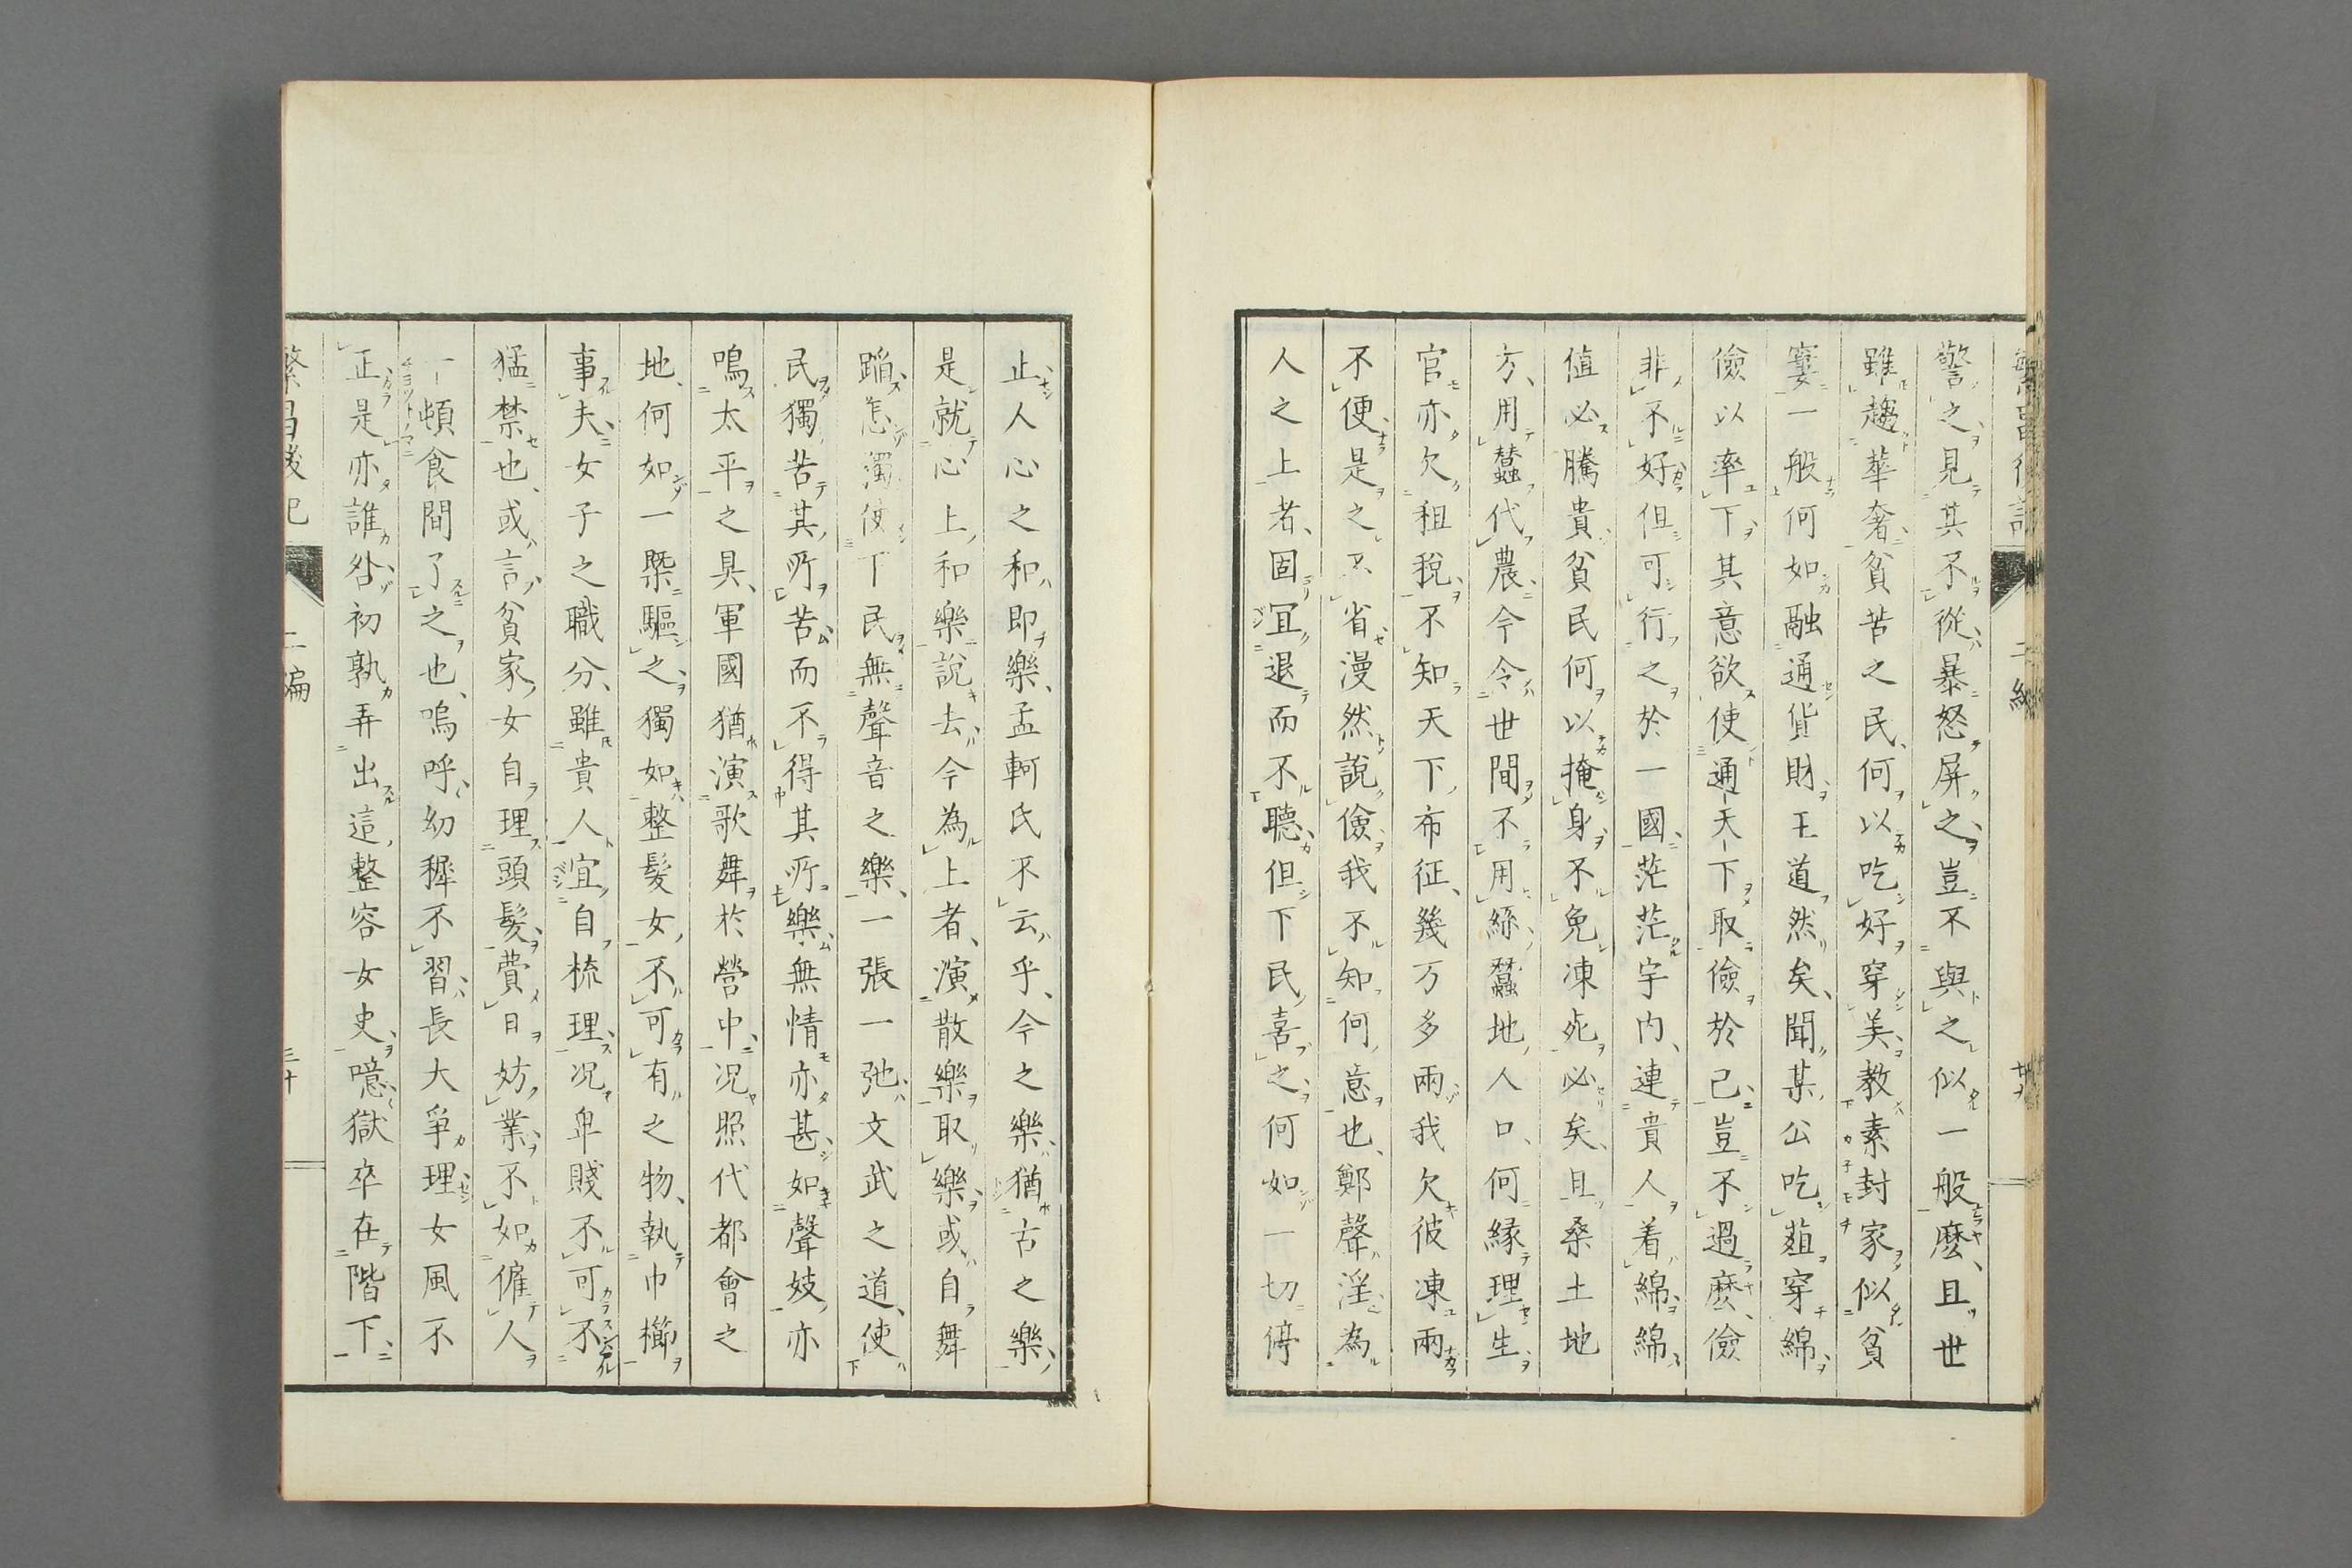 警之見其不從暴怒屏之豈不與之似一般麼、且世
雖趨華奢貧苦之民、何以吃好穿美教素封家似貧
窶一般何如融通貨財王道然矣、聞某公吃薤穿綿
儉以率下其意欲使通天下取儉於己豈不過麼、儉
非不好但可行之於一國茫茫宇内、連貴人着綿綿
値必騰貴貧民何以掩身不免凍死必矣、且桑土地
方、用蠶代農今令世間不用絲蠶地人口、何縁理生
官亦欠租稅不知天下布征、幾万多兩我欠彼凍兩
不便是之不省漫然說儉我不知何意也、鄭聲淫為
人之上者、固冝退而不聽但下民喜之何如一切停
止人心之和即樂、孟軻氏不云乎、今之樂猶古之樂
是就心上和樂說去今為上者、演散樂取樂或自舞
蹈怎濁使下民無聲音之樂、一張一弛文武之道、使
民獨苦其所苦而不得其所樂無情亦甚如聲妓亦
鳴太平之具、軍國猶演歌舞於營中、况照代都會之
地、何如一槩驅之獨如整髮女不可有之物、執巾櫛
事夫女子之職分、雖貴人宜自梳理况卑賤不可不
猛禁也、或言貧家女自理頭髮費日妨業不如傭人
一頓食間了之也、嗚呼幼穉不習長大爭理女風不
正是亦誰咎初孰弄出這整容女史噫獄卒在階下
繁昌後記
二編
三十